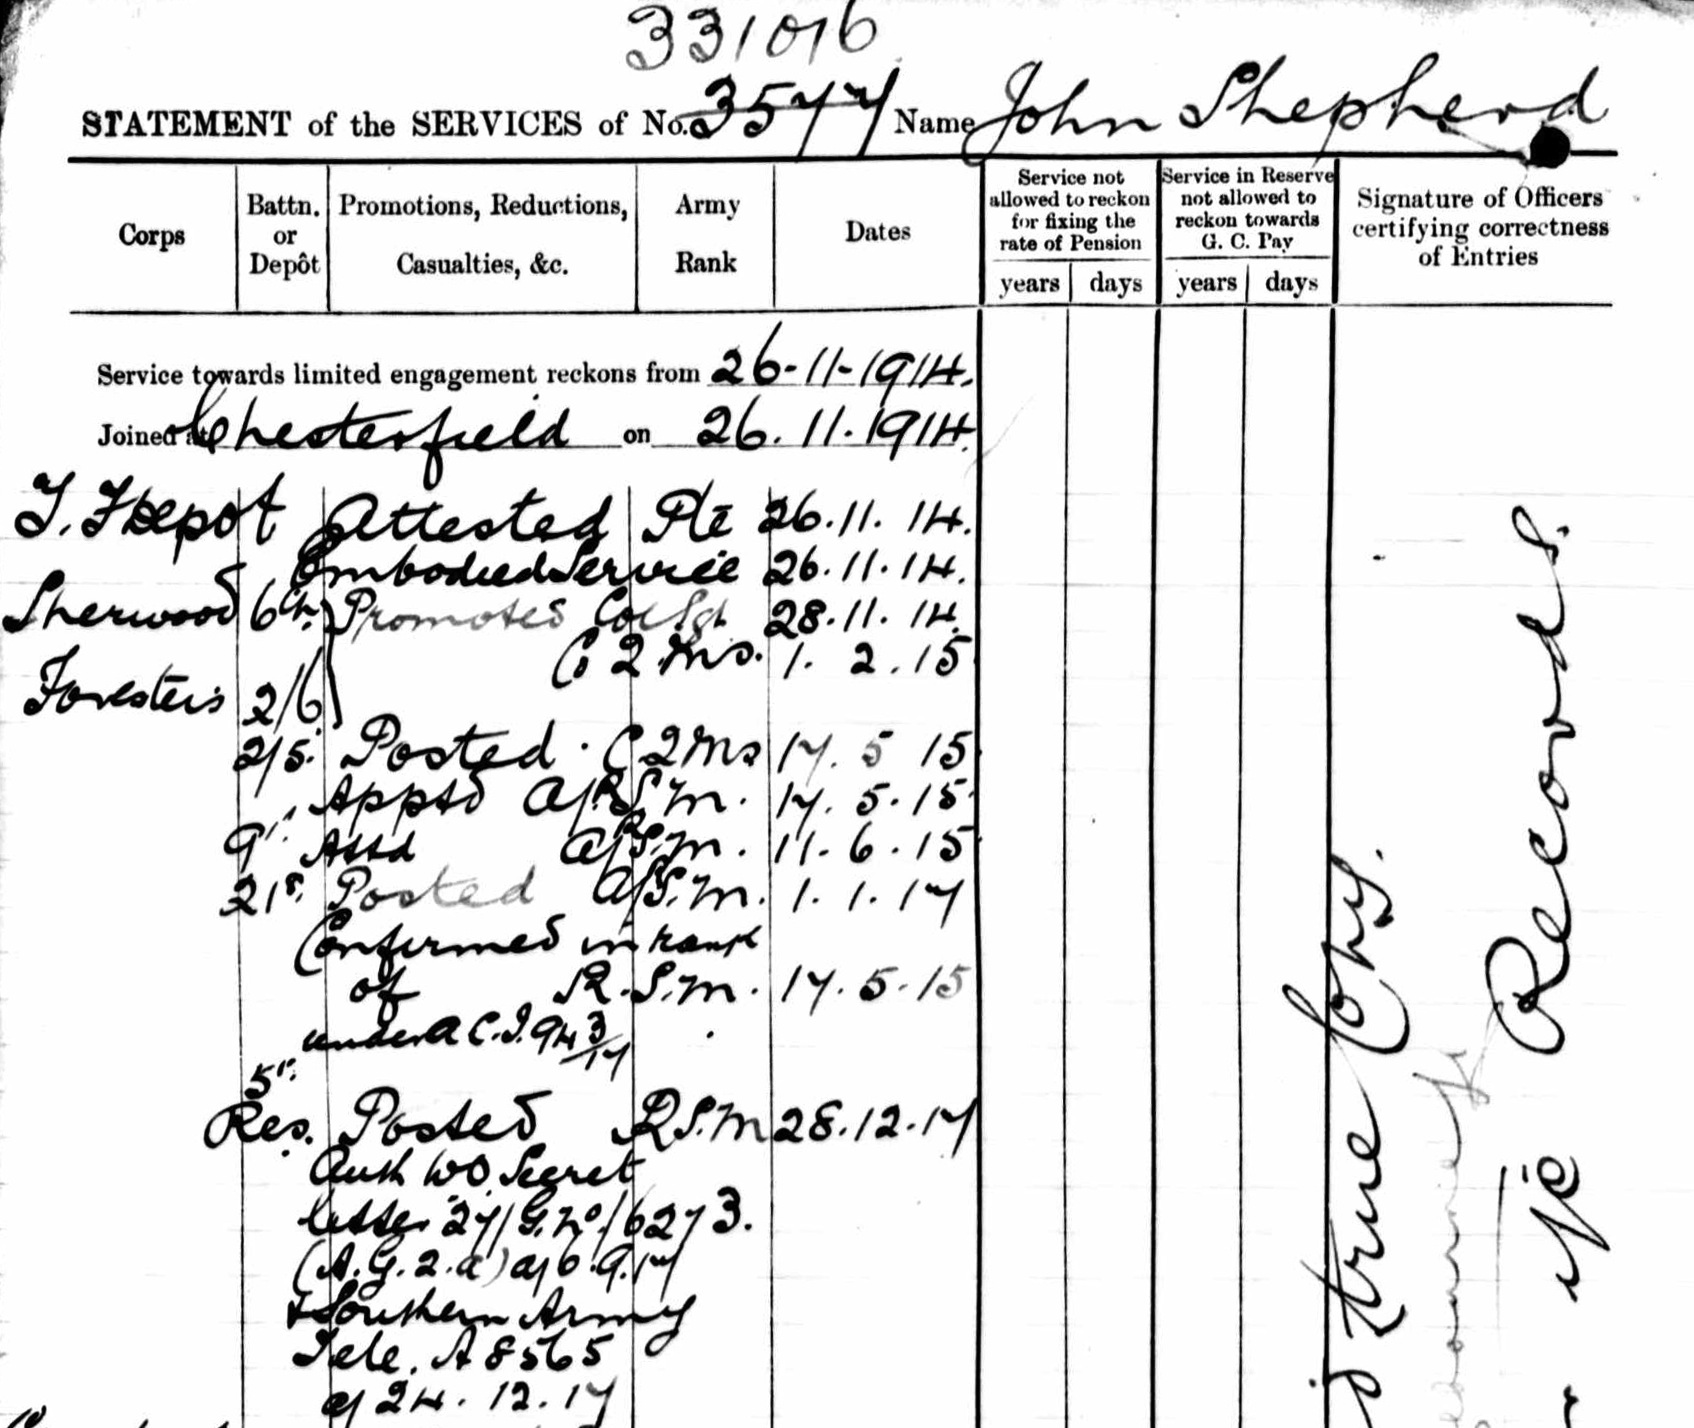 331016
STATEMENT of the SERVICES of No. 3577 Name John Shepherd
Corps
Battn. or Depôt
Promotions, Reductions, Casualties, &c.
Army Rank
Dates
Service not allowed to reckon for fixing the rate of Pension
years days
Service in Reserve not allowed to reckon towards G. C. Pay
years days
Signature of Officers certifying correctness of Entries
Service towards limited engagement reckons from 26-11-1914.
Joined at Chesterfield on 26.11.1914.
T. F Depot Attested Pte 26.11.14.
Embodied Service 26.11.14.
Sherwood 6th. Promoted Col Sgt 28.11.14.
C Q M S. 1. 2. 15
Foresters 2/6
2/5. Posted. C Q M S 17. 5 15
Apptd A/R.S.M. 17. 5. 15
9th Attd A/R.S.M. 11. 6. 15
21st Posted A/S.M. 1. 1. 17
Confirmed in rank
of R.S.M. 17. 5. 15
under A C.I. 943/17
5th
Res. Posted R.S.M 28.12.17
Auth WO Secret
letter 27/G.No/6273.
(A.G.2.a) d/6.9.17
& Southern Army
Tele. A 8565
d/ 24. 12. 17
true Copy.
i/c Records.